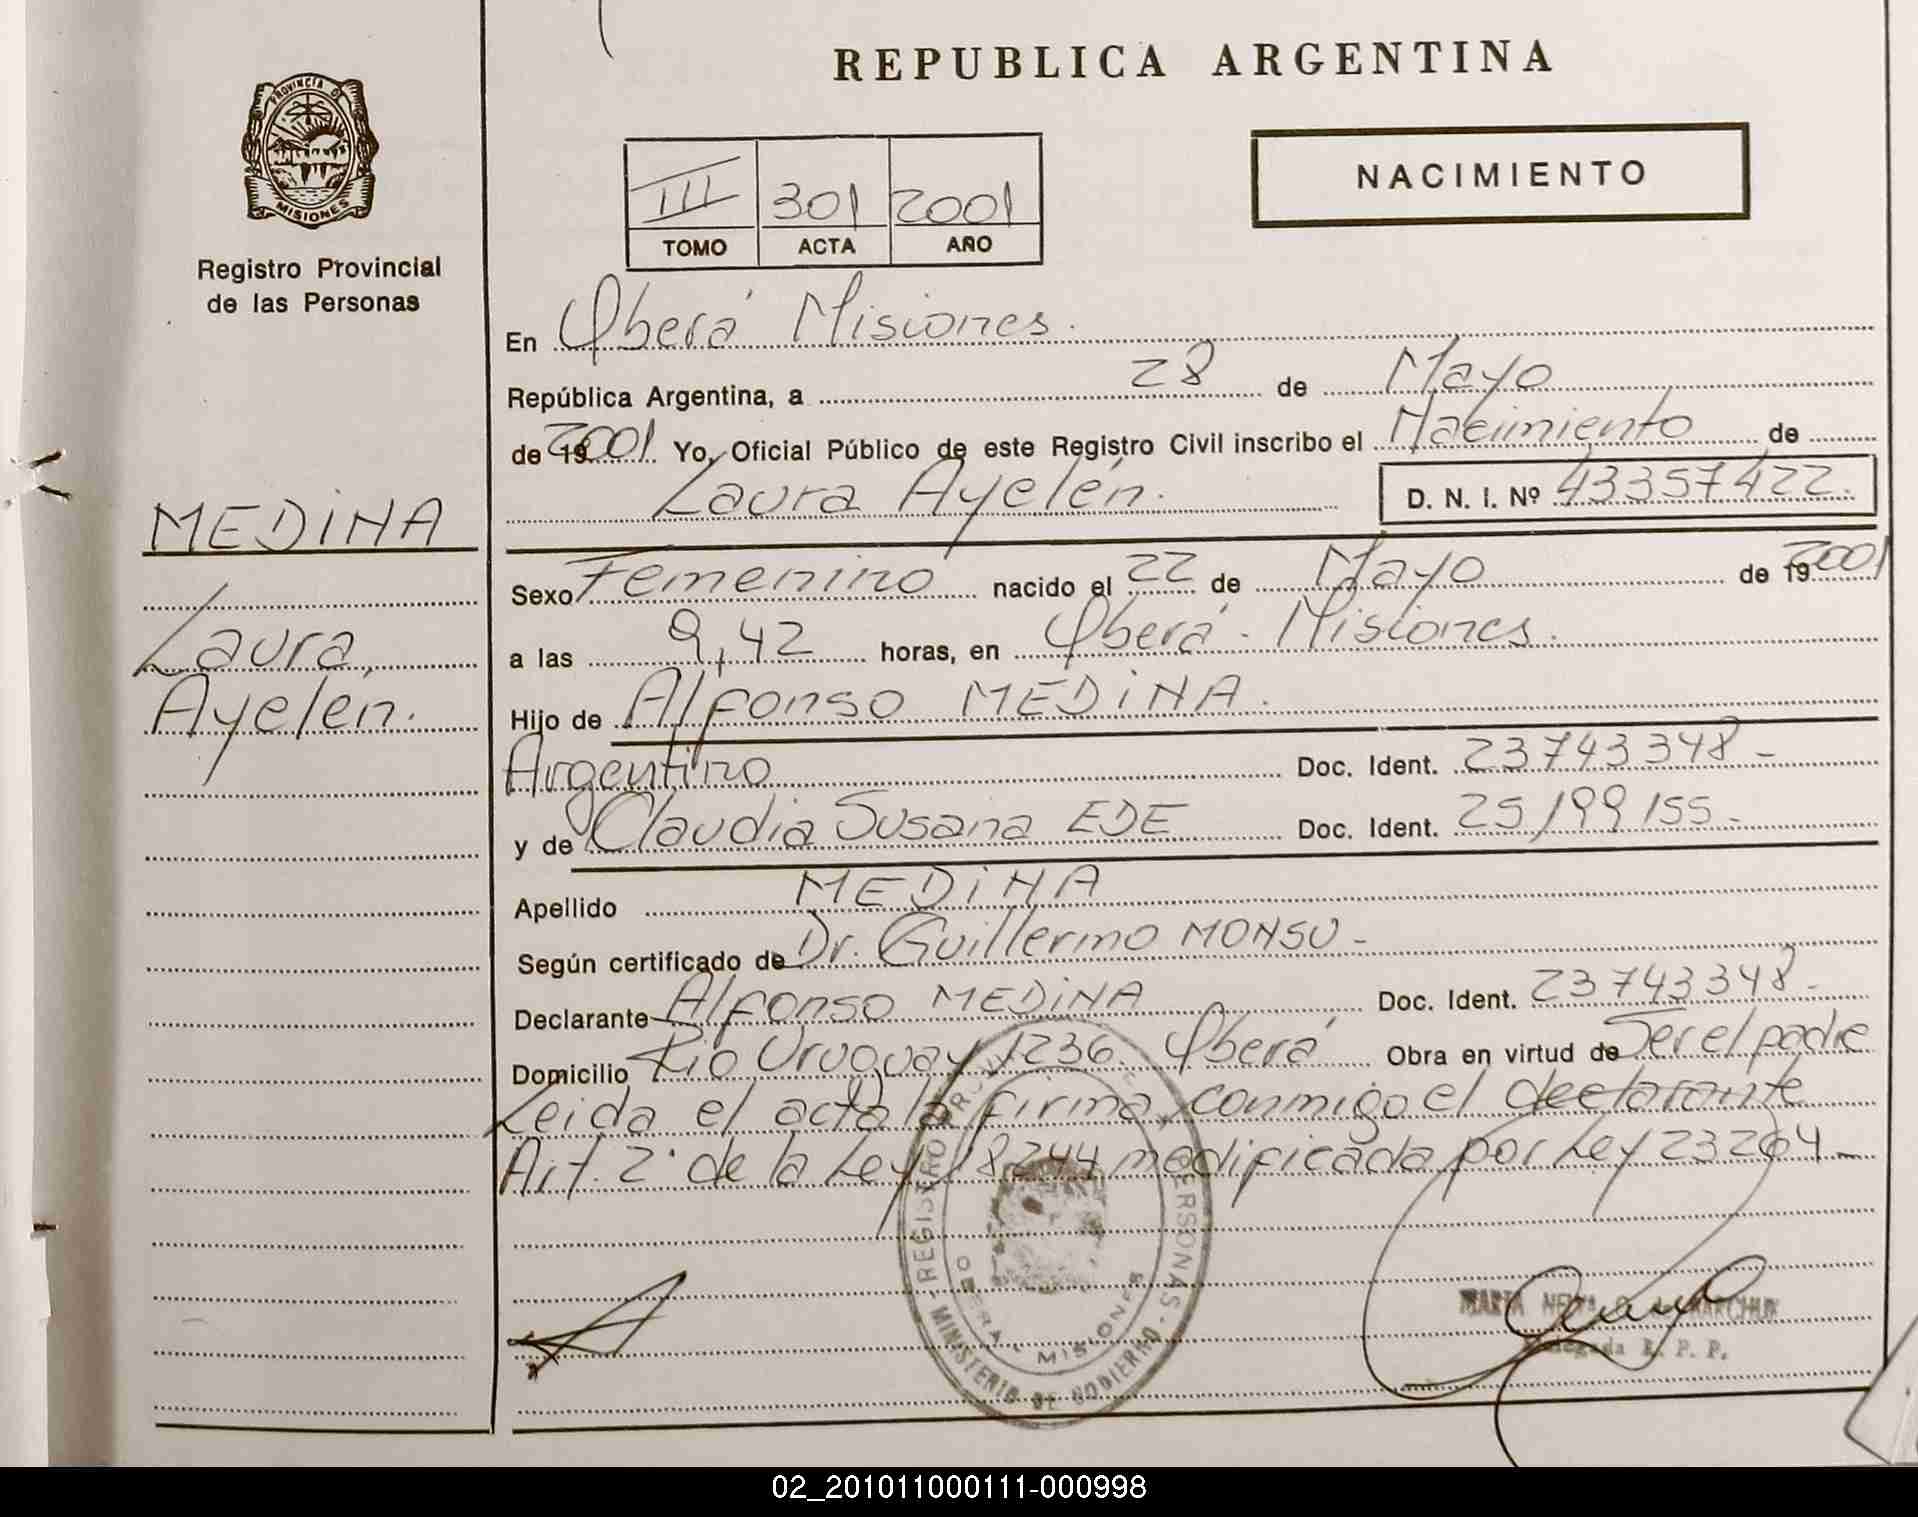 REPUBLICA ARGENTINA
PROVINCIA DE
MISIONES
Registro Provincial
de las Personas
NACIMIENTO
III 301 2001
TOMO ACTA AÑO
En Oberá Misiones.
República Argentina, a 28 de Mayo
de 19 2001 Yo, Oficial Público de este Registro Civil inscribo el Nacimiento de
Laura Ayelén. D. N. I. Nº 43357422.
MEDINA
Laura
Ayelén.
Sexo Femenino nacido el 22 de Mayo de 19 2001
a las 9,42 horas, en Oberá - Misiones.
Hijo de Alfonso MEDINA.
Argentino Doc. Ident. 23743348-
y de Claudia Susana EDE Doc. Ident. 25199155-
Apellido MEDINA
Según certificado de Dr. Guillermo MONSU-
Declarante Alfonso MEDINA Doc. Ident. 23743348-
Domicilio Río Uruguay 1236. Oberá Obra en virtud de Ser el padre
Leida el acta la firma conmigo el declarante
Art. 2° de la Ley 18244 modificada por Ley 23264-
REGISTRO PERSONAS - MINISTERIO DE GOBIERNO -
OBERA - MISIONES
R. P. P.
02_201011000111-000998